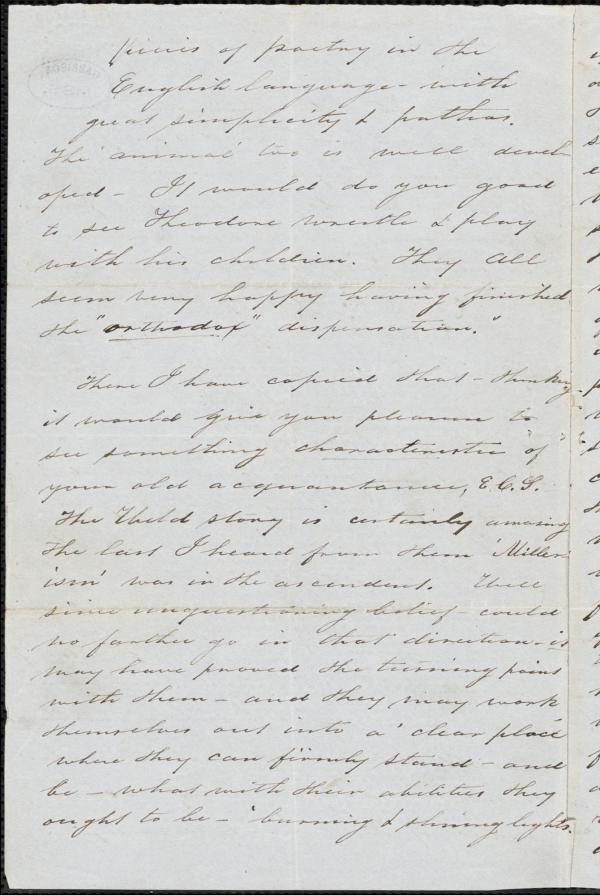 pieces of poetry in the
English language - with
great simplicity & pathos.
The 'animal' too is well devel-
oped - It would do you good
to see Theodore wrestle & play
with his children. They all
seem very happy having finished
the "orthodox" dispensation."
There I have copied that - thinking
it would give you pleasure to
see something characteristic of
your old acquaintance, E.C.S.
The Weld story is certainly amusing
The last I heard from them 'Miller-
ism' was in the ascendent. Well
since unquestioning belief could
no farther go in that direction - it
may have proved the turning point
with them - and they may work
themselves out into a 'clear place'
where they can firmly stand - and
be - what with their abilities they
ought to be - 'burning & shining lights.